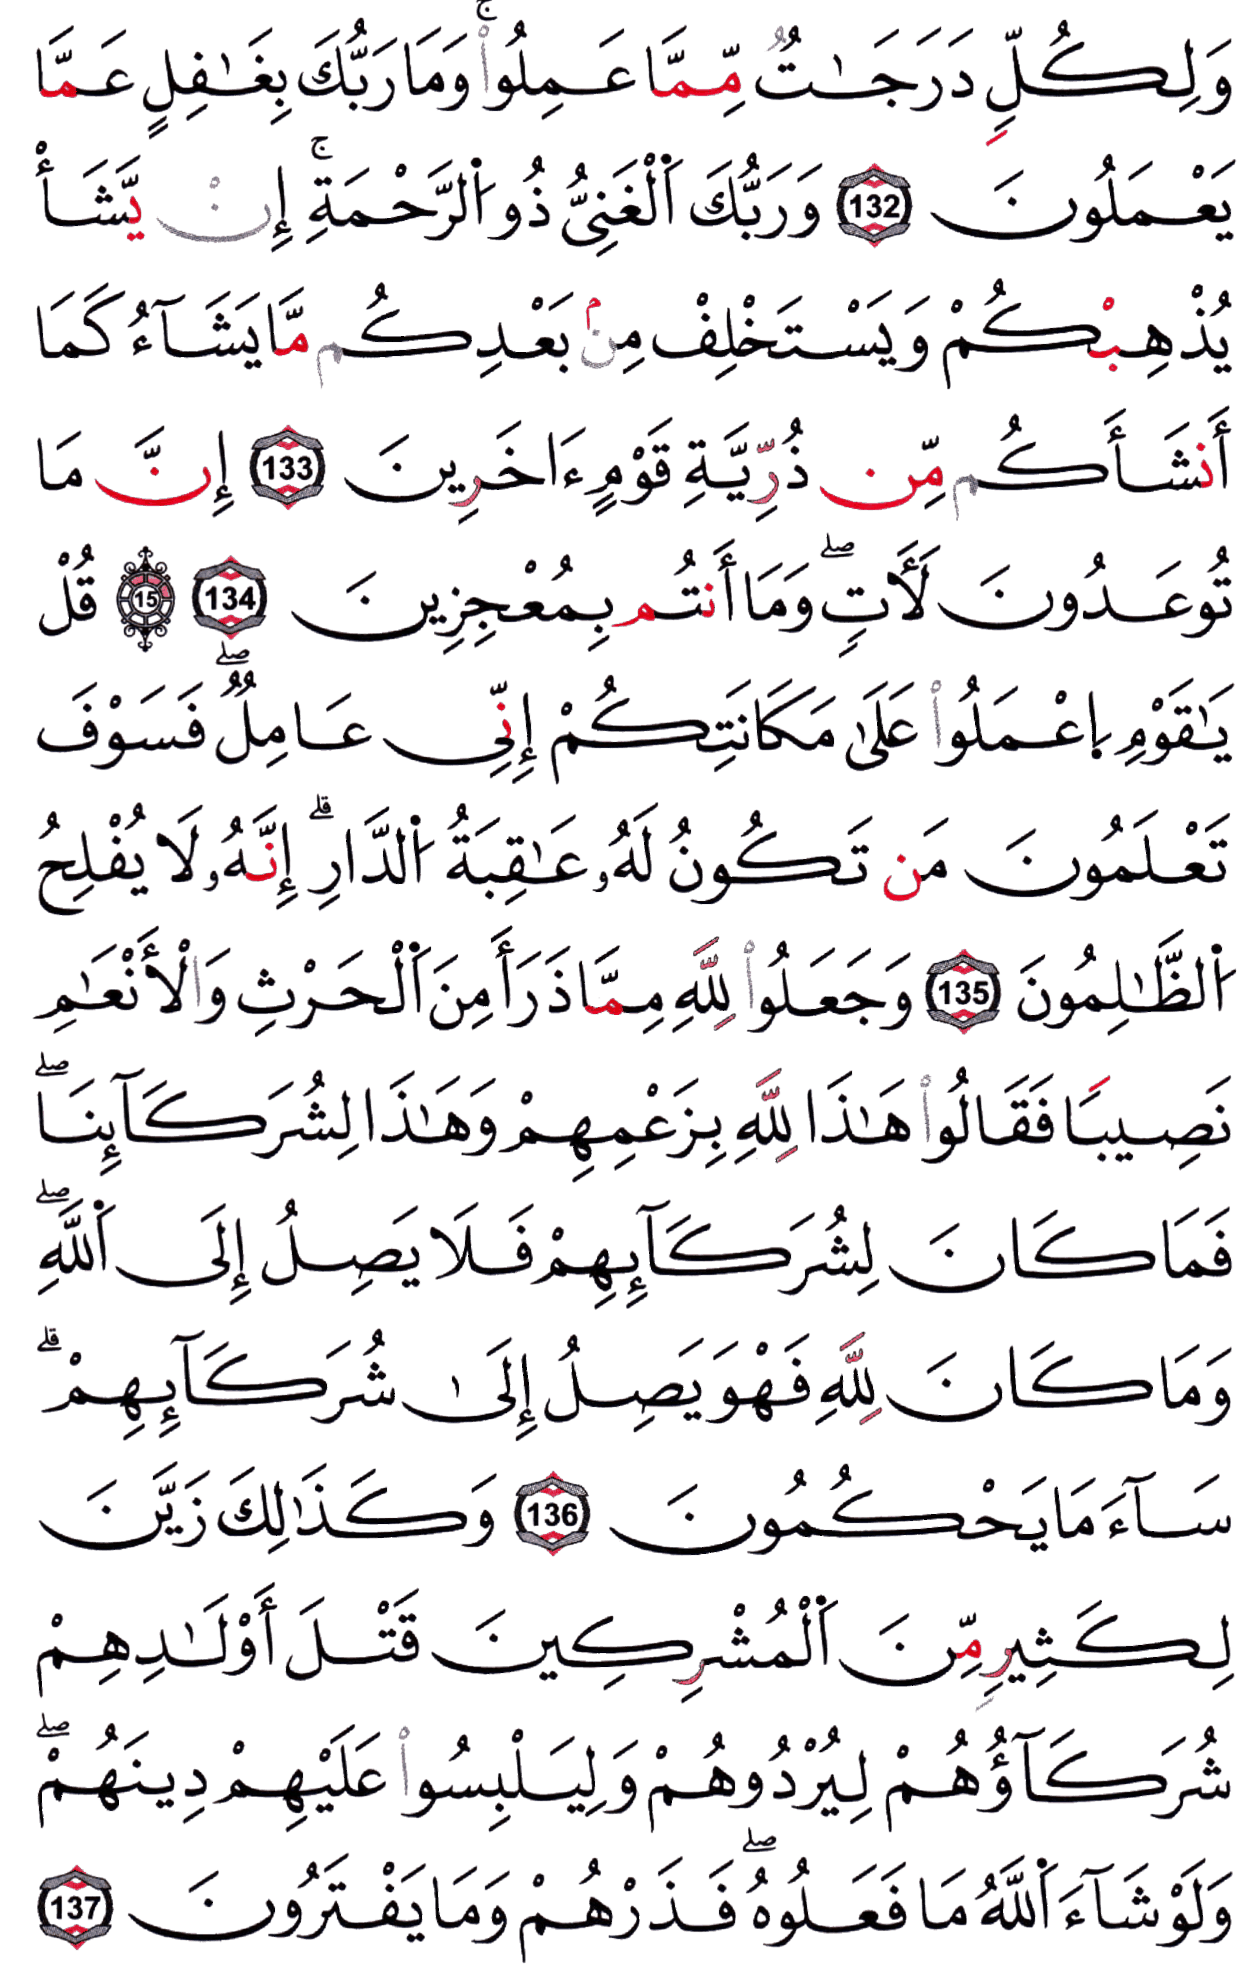 وَلِكُلٍّ دَرَجَٰتٌ مِّمَّا عَمِلُواْۚ وَمَا رَبُّكَ بِغَٰفِلٍ عَمَّا
يَعْمَلُونَ 132 وَرَبُّكَ اَ۬لْغَنِيُّ ذُو اُ۬لرَّحْمَةِۚ إِنْ يَّشَأْ
يُذْهِبْكُمْ وَيَسْتَخْلِفْ مِنۢ بَعْدِكُم مَّا يَشَآءُ كَمَا
أَنشَأَكُم مِّن ذُرِّيَّةِ قَوْمٍ ءَاخَرِينَ 133 إِنَّ مَا
تُوعَدُونَ لَأٓتٍۖ وَمَا أَنتُم بِمُعْجِزِينَ 134 15 قُلْ
يَٰقَوْمِ اِ۪عْمَلُواْ عَلَىٰ مَكَانَتِكُمْ إِنِّي عَامِلٌۖ فَسَوْفَ
تَعْلَمُونَ مَن تَكُونُ لَهُۥ عَٰقِبَةُ اُ۬لدَّارِۗ إِنَّهُۥ لَا يُفْلِحُ
اُ۬لظَّٰلِمُونَ 135 وَجَعَلُواْ لِلَّهِ مِمَّا ذَرَأَ مِنَ اَ۬لْحَرْثِ وَالْأَنْعَٰمِ
نَصِيبًا فَقَالُواْ هَٰذَا لِلَّهِ بِزَعْمِهِمْ وَهَٰذَا لِشُرَكَآئِنَاۖ
فَمَا كَانَ لِشُرَكَآئِهِمْ فَلَا يَصِلُ إِلَى اَ۬للَّهِۖ
وَمَا كَانَ لِلَّهِ فَهْوَ يَصِلُ إِلَىٰ شُرَكَآئِهِمْۗ
سَآءَ مَا يَحْكُمُونَ 136 وَكَذَٰلِكَ زَيَّنَ
لِكَثِيرٍ مِّنَ اَ۬لْمُشْرِكِينَ قَتْلَ أَوْلَٰدِهِمْ
شُرَكَآؤُهُمْ لِيُرْدُوهُمْ وَلِيَلْبِسُواْ عَلَيْهِمْ دِينَهُمْۖ
وَلَوْ شَآءَ اَ۬للَّهُ مَا فَعَلُوهُۖ فَذَرْهُمْ وَمَا يَفْتَرُونَ 137